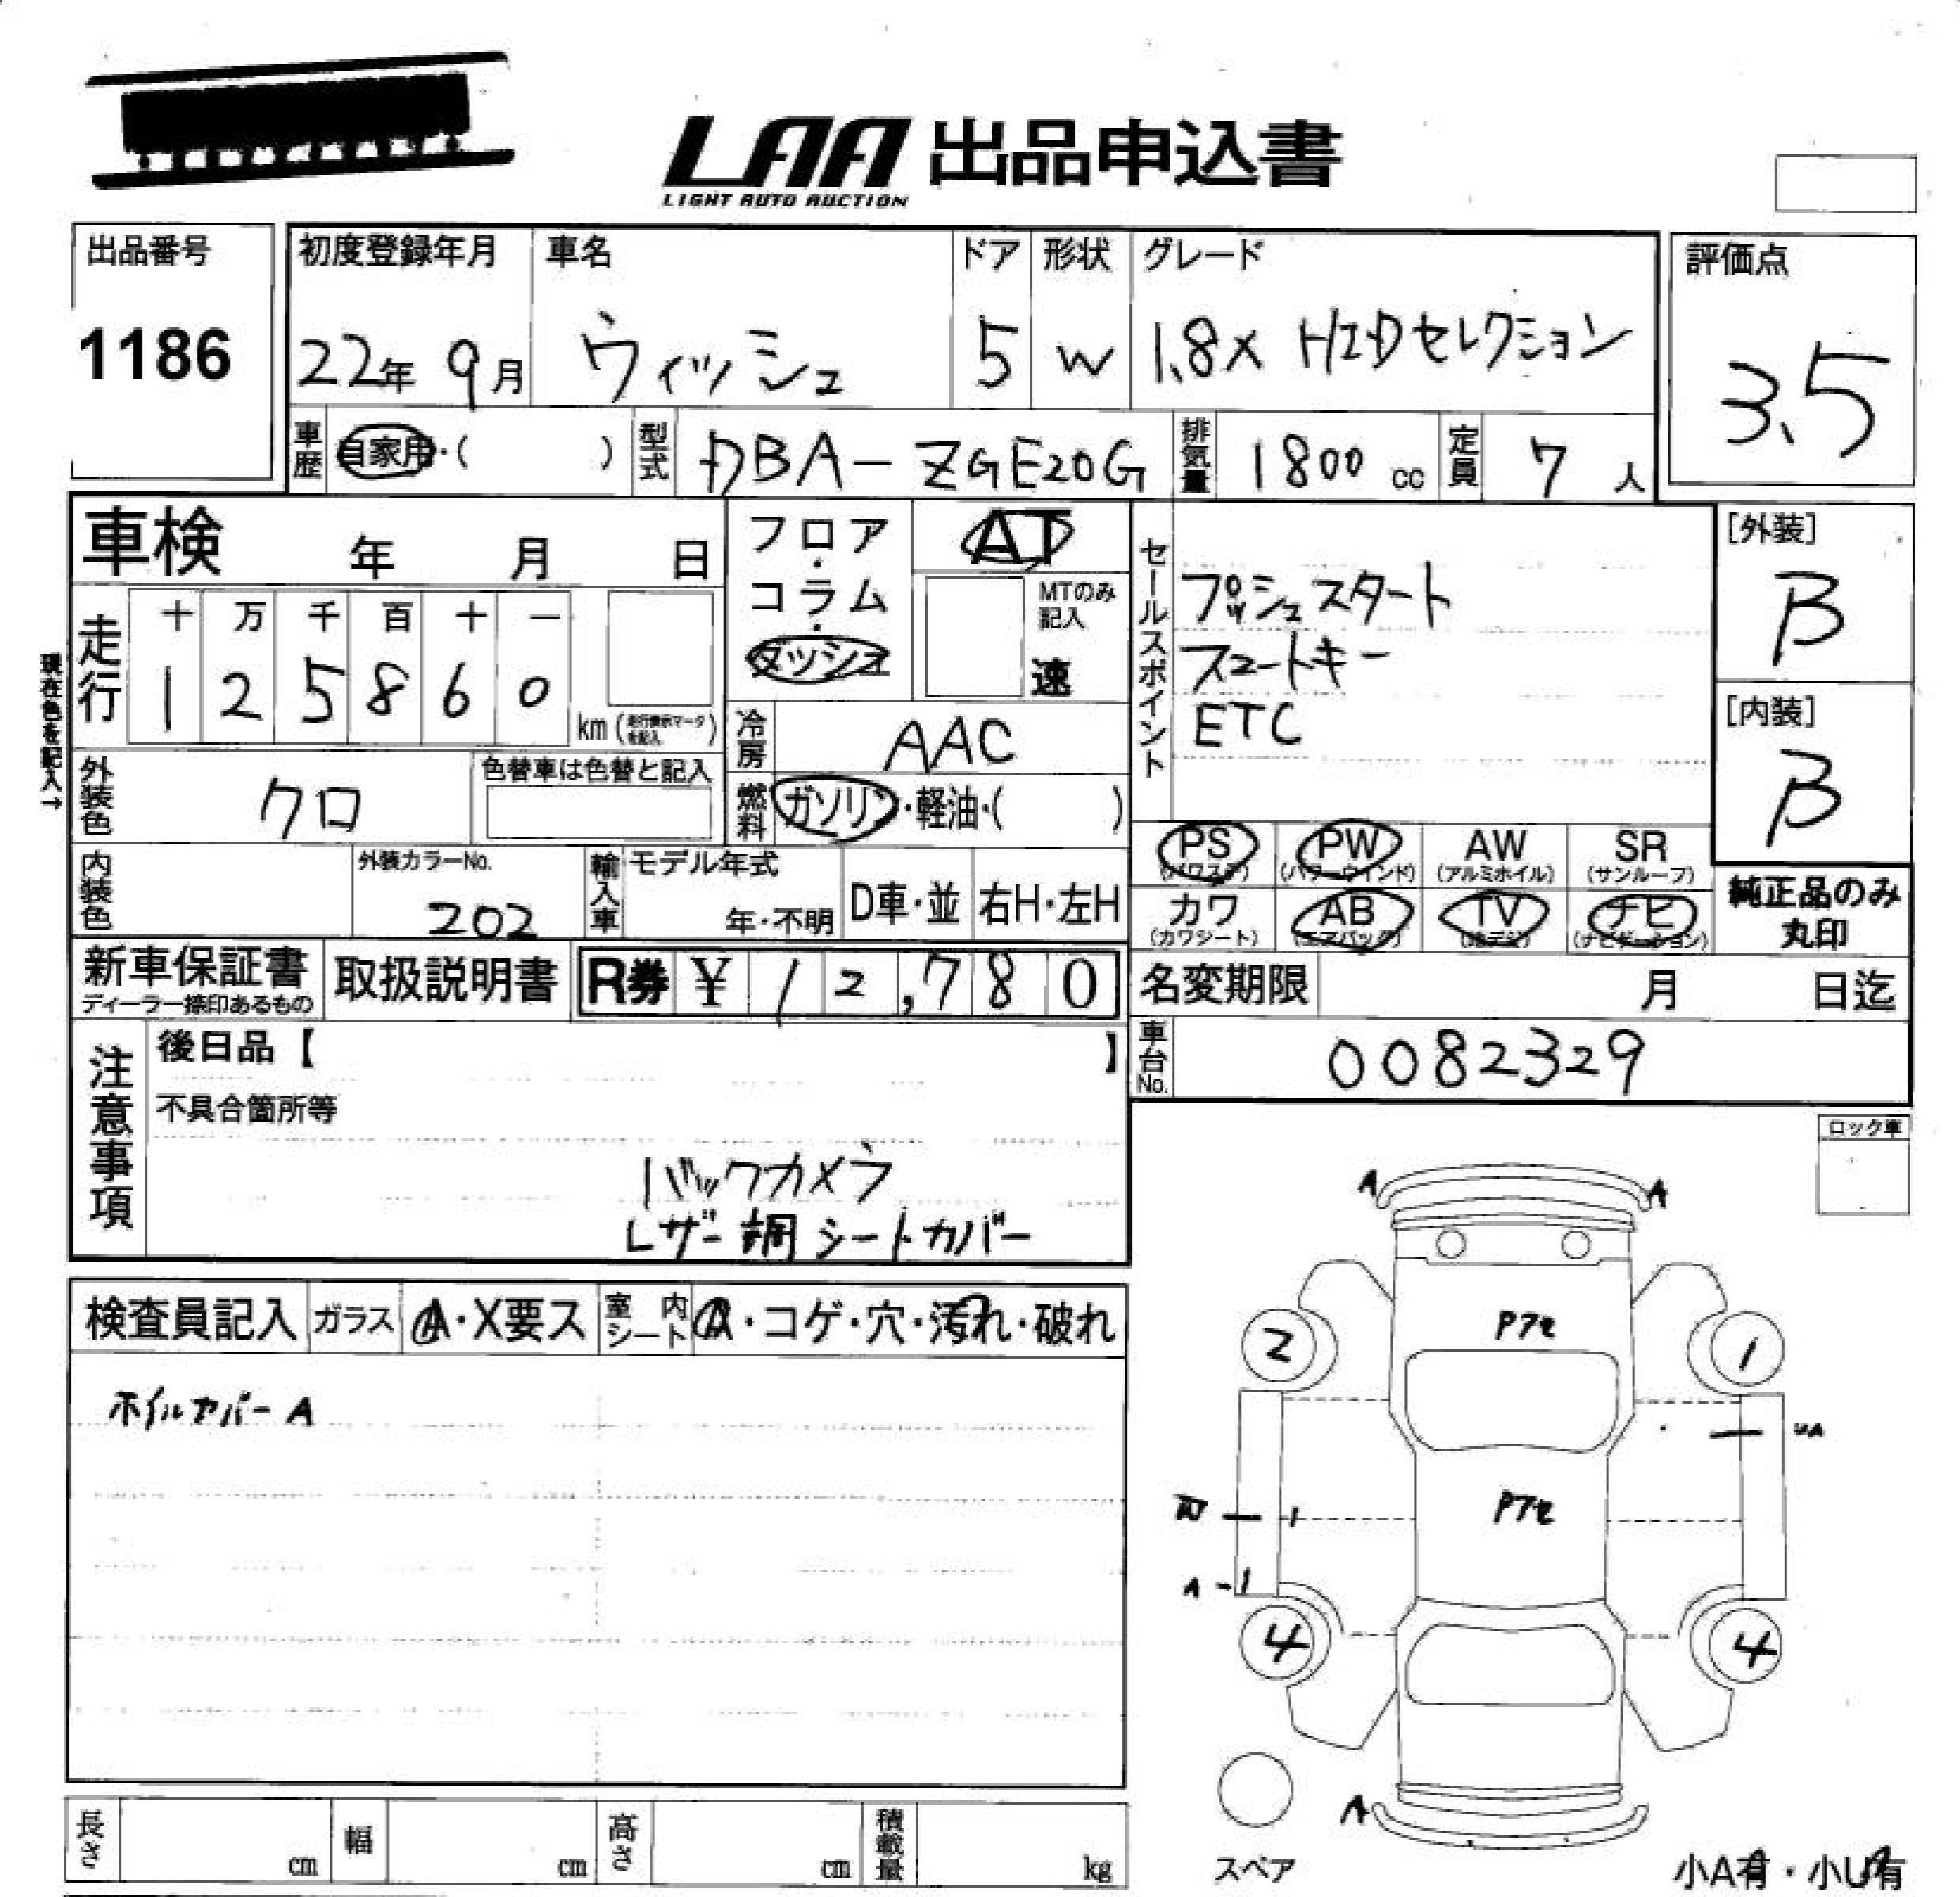 LAA 出品申込書
LIGHT AUTO AUCTION
出品番号
1186
初度登録年月
22年 9月
車名
ウィッシュ
ドア
5
形状
W
グレード
1.8X HIDセレクション
評価点
3.5
車歴
自家用・( )
型式
DBA-ZGE20G
排気量
1800 cc
定員
7 人
車検 年 月 日
フロア・コラム・ダッシュ
AT
MTのみ記入
速
セールスポイント
プッシュスタート
スマートキー
ETC
[外装]
B
[内装]
B
現在色を記入→
走行
十 万 千 百 十 一
1 2 5 8 6 0
km (走行表示マークを記入)
冷房
AAC
外装色
クロ
色替車は色替と記入
燃料
ガソリン・軽油・( )
PS (パワステ)
PW (パワーウインド)
AW (アルミホイル)
SR (サンルーフ)
内装色
外装カラーNo.
202
輸入車
モデル年式
年・不明
D車・並
右H・左H
カワ (カワシート)
AB (エアバッグ)
TV (地デジ)
ナビ (ナビゲーション)
純正品のみ
丸印
新車保証書
ディーラー捺印あるもの
取扱説明書
R券 ¥ 12,780
名変期限 月 日迄
注意事項
後日品【 】
不具合箇所等
バックカメラ
レザー調 シートカバー
車台No.
0082329
ロック車
検査員記入
ガラス
A・X要ス
室内シート
A・コゲ・穴・汚れ・破れ
ホイルカバー A
A A
Pアセ
2 1
UA
Pアセ
A
4 4
A
スペア
長さ cm
幅 cm
高さ cm
積載量 kg
小A有・小U有